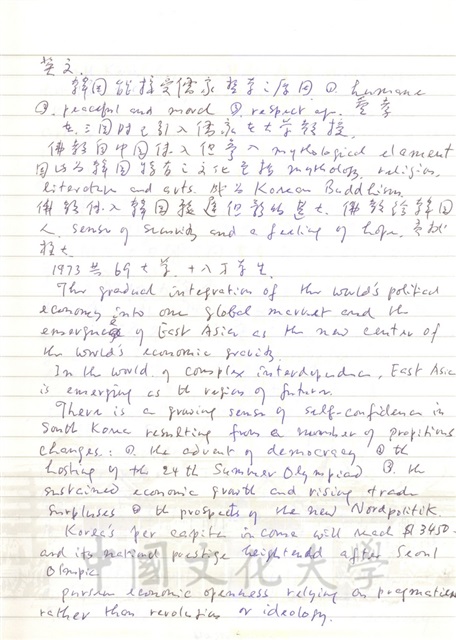 英文.
韓國能接受儒家哲學之原因 ①. humane
②. peaceful and moral ③. respect of 
在三國時已引入儒家在大學教授.
佛教自中國傳入但 mythological element
因此為韓國 之文化包括 mythology, religion,
literature and arts. 成為 Korean Buddhism.
佛教傳入韓國 但影响是大. 佛教給韓國
人 sense of security and a feeling of hope.
1973 共 69 大學. 十八万学生.
The gradual integration of the world's political
economy into one global market and the
emergence of East Asia as the new center of
the world's economic gravity.
In the world of complex interdependence, East Asia
is emerging as the region of future.
There is a growing sense of self-confidence in
South Korea resulting from a number of propitious
changes: ①. the advent of democracy ② the
hosting of the 24th Summer Olympiad ③. the
sustained economic growth and rising trade
surpluses ④ the prospects of the new Nordpolitik.
Korea's per capita income will reach $3450-
and its national prestige heightened after Seoul
Olympic
pursue economic openness relying on pragmatism
rather than revolution or ideology.
中國文化大學